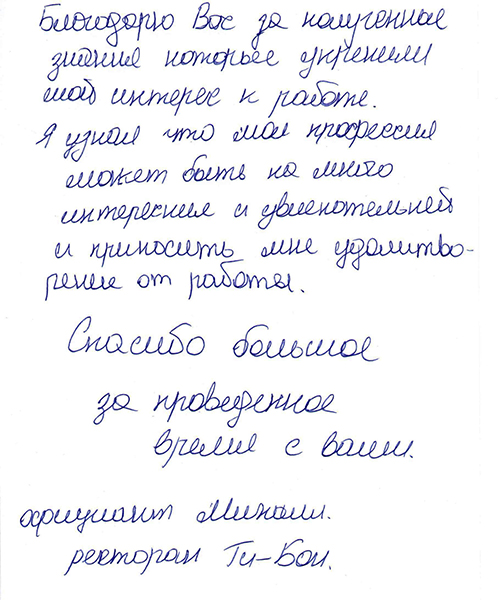 Благодарю Вас за полученные
знания которые укрепили
мой интерес к работе.
Я узнал что моя профессия
может быть на много
интересние и увлекательней
и приносить мне удолитво-
рение от работы.
Спасибо большое
за проведенное
время с вами.
официант Михаил.
ресторан Ти-Бон.